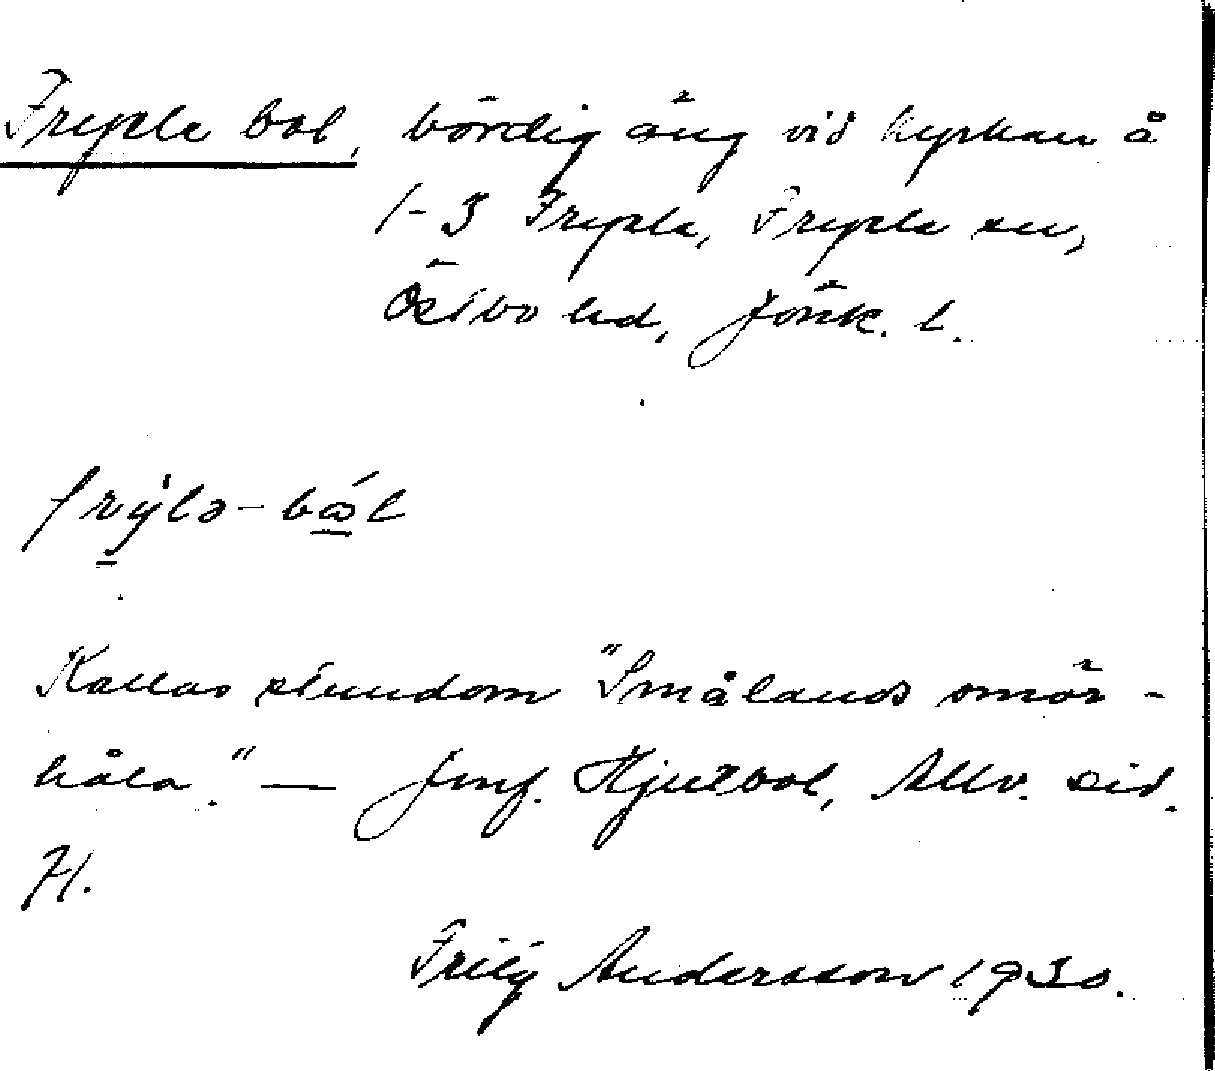 Fryele bol, bördig äng vid kyrkan å
1-3 Fryele, Fryele sn,
Östbo hd, Jönk. l.
frýlə-ból
Kallas stundom "Smålands smör-
håla." — Jmf. Hjulbol, Allv. sid.
71.
Andersson 1930.